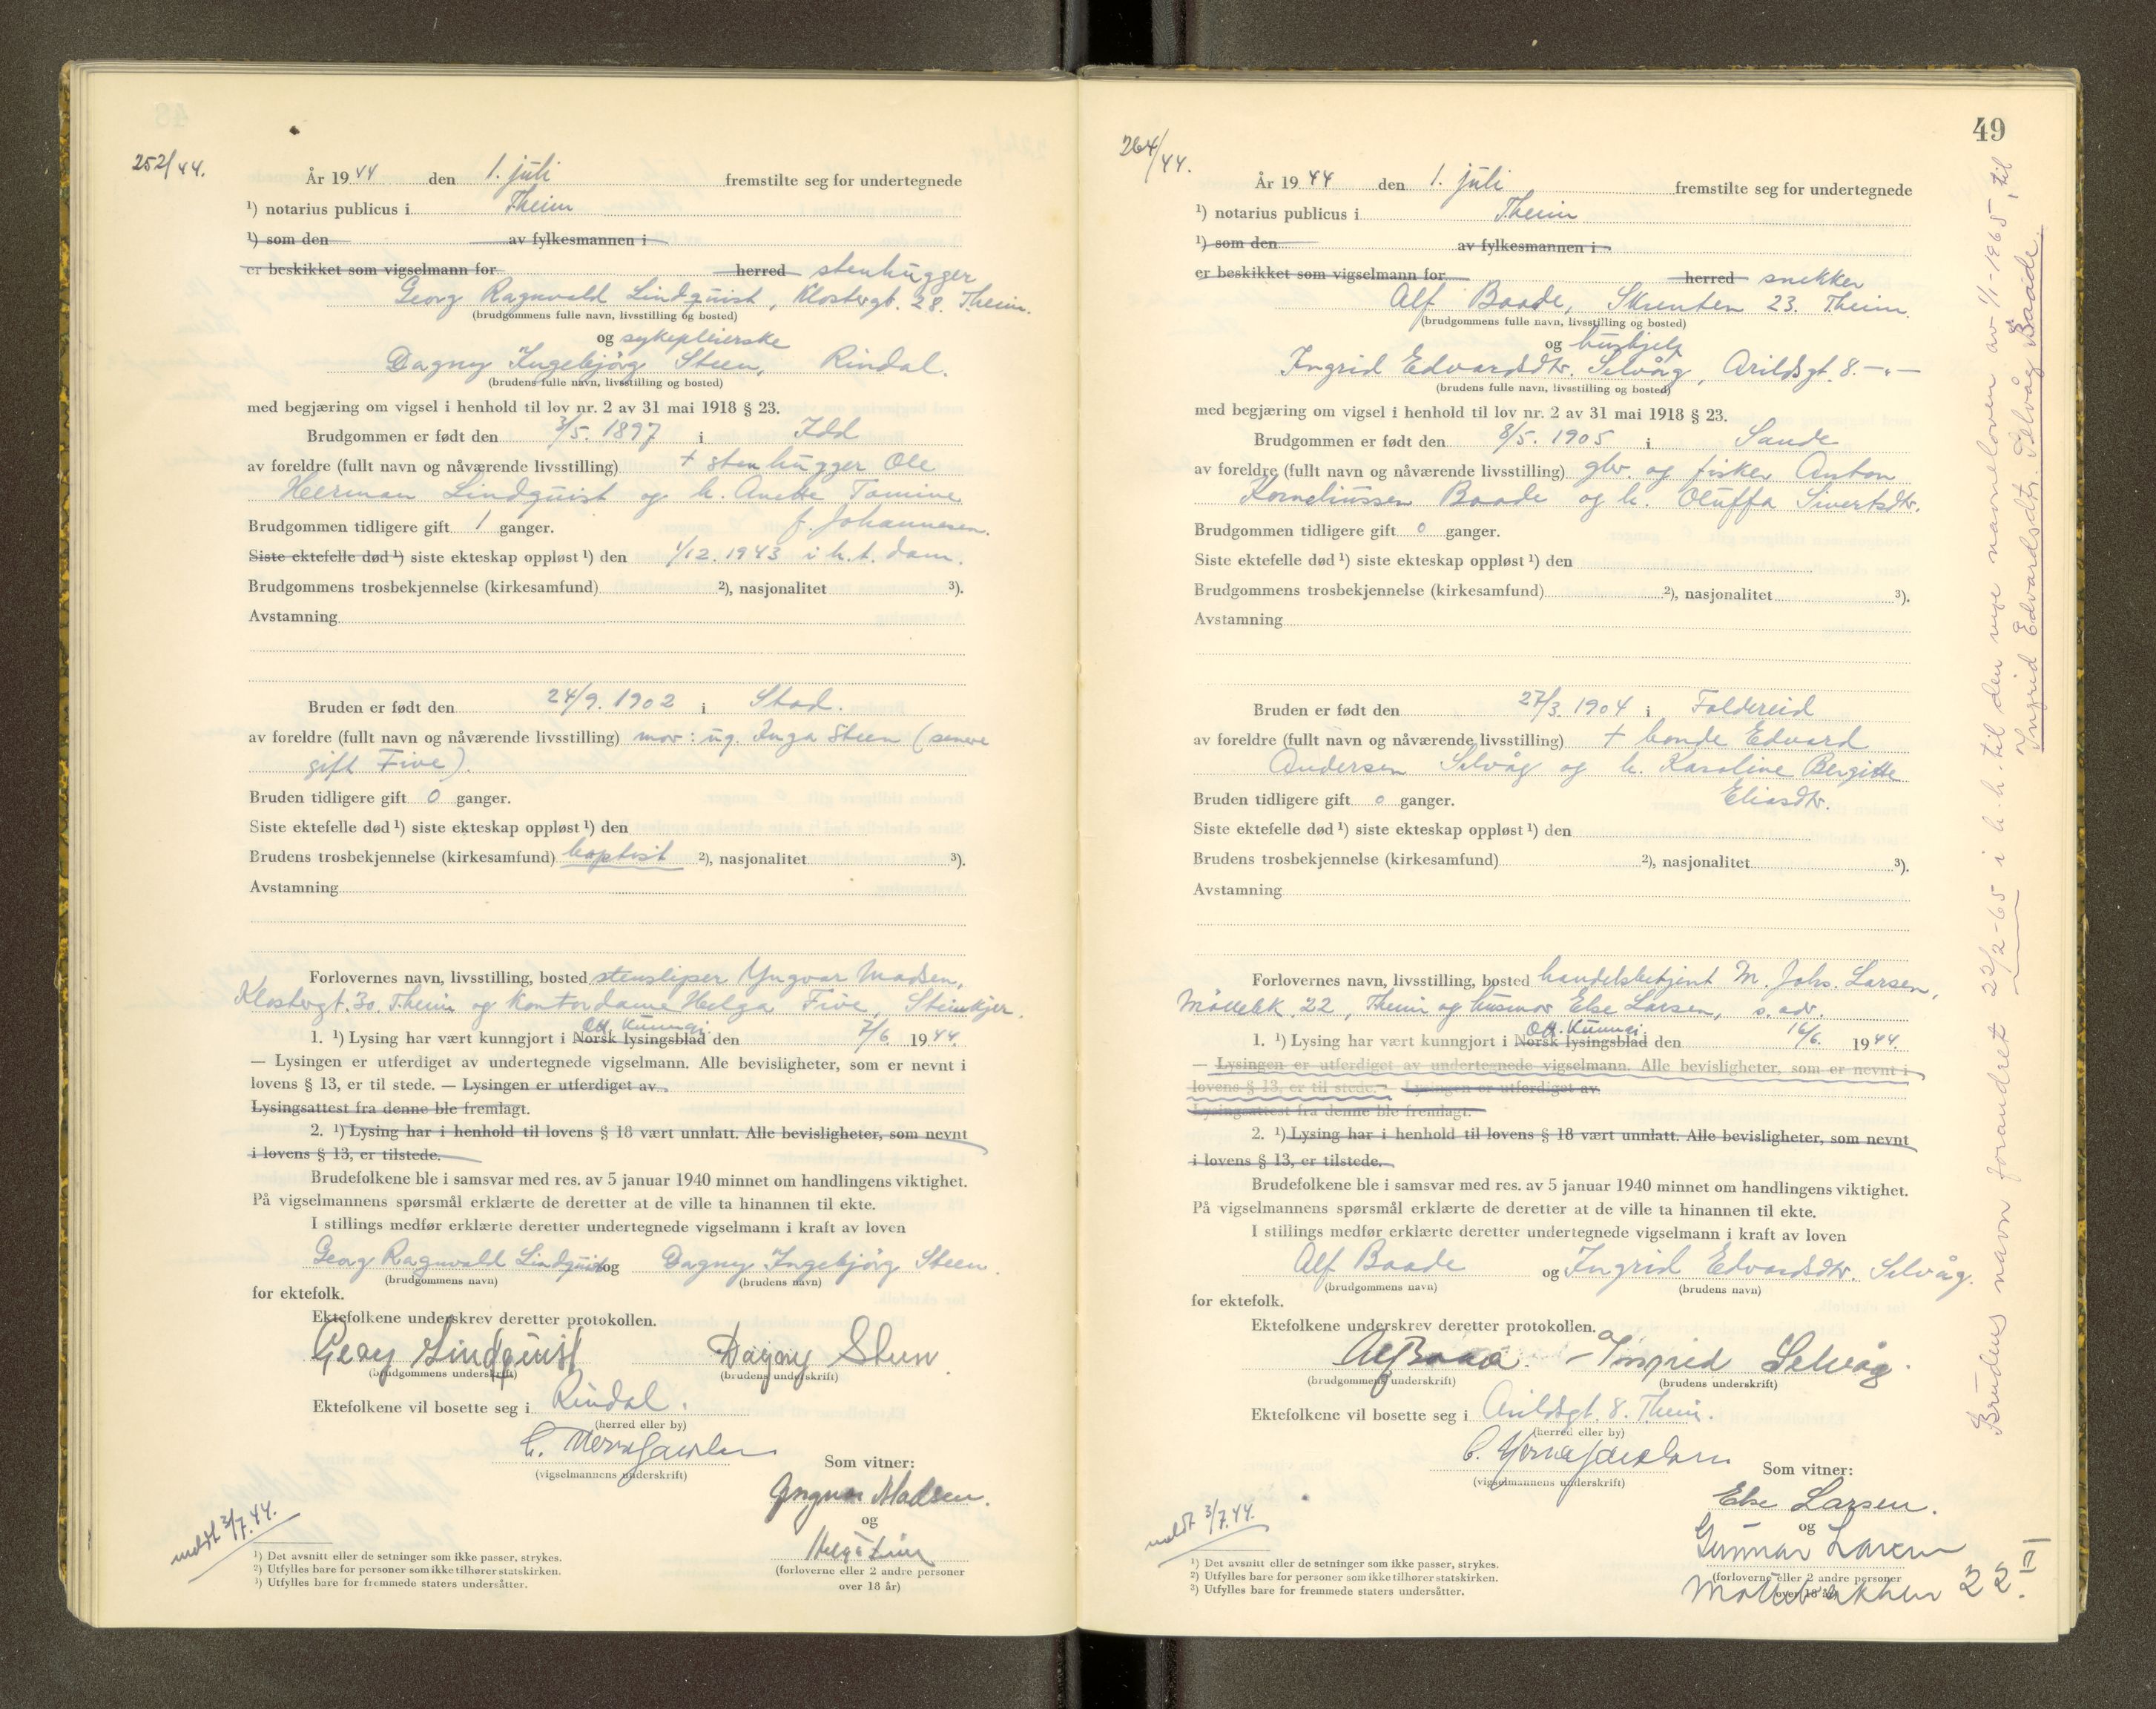 252/44.
År 1944 den 1. juli fremstilte seg for undertegnede
¹) notarius publicus i Theim
¹) som den av fylkesmannen i
er beskikket som vigselmann for herred stenhugger
Georg Ragnvald Lindquist, Klostergt. 28. Theim.
(brudgommens fulle navn, livsstilling og bosted)
og sykepleierske
Dagny Ingebjörg Steen, Rindal.
(brudens fulle navn, livsstilling og bosted)
med begjæring om vigsel i henhold til lov nr. 2 av 31 mai 1918 § 23.
Brudgommen er født den 3/5. 1897 i Idd
av foreldre (fullt navn og nåværende livsstilling) + stenhugger Ole
Herman Lindquist og h. Anette Tomine
f. Johannesen.
Brudgommen tidligere gift 1 ganger.
Siste ektefelle død ¹) siste ekteskap oppløst ¹) den 1/12. 1943 i h. t. dom.
Brudgommens trosbekjennelse (kirkesamfund) ²), nasjonalitet ³).
Avstamning
Bruden er født den 24/9. 1902 i Stod.
av foreldre (fullt navn og nåværende livsstilling) mor: ug. Inga Steen (senere
gift Five).
Bruden tidligere gift 0 ganger.
Siste ektefelle død ¹) siste ekteskap oppløst ¹) den
Brudens trosbekjennelse (kirkesamfund) baptist ²), nasjonalitet ³).
Avstamning
Forlovernes navn, livsstilling, bosted stensliper Yngvar Madsen,
Klostergt. 30. Theim og kontordame Helga Five, Steinkjer.
Off. Kunngj.
1. ¹) Lysing har vært kunngjort i Norsk lysingsblad den 7/6. 1944.
— Lysingen er utferdiget av undertegnede vigselmann. Alle bevisligheter, som er nevnt i
lovens § 13, er til stede. — Lysingen er utferdiget av
Lysingsattest fra denne ble fremlagt.
2. ¹) Lysing har i henhold til lovens § 18 vært unnlatt. Alle bevisligheter, som nevnt
i lovens § 13, er tilstede.
Brudefolkene ble i samsvar med res. av 5 januar 1940 minnet om handlingens viktighet.
På vigselmannens spørsmål erklærte de deretter at de ville ta hinannen til ekte.
I stillings medfør erklærte deretter undertegnede vigselmann i kraft av loven
Georg Ragnvald Lindquist og Dagny Ingebjörg Steen.
(brudgommens navn) (brudens navn)
for ektefolk.
Ektefolkene underskrev deretter protokollen.
Georg Lindquist Dagny Steen
(brudgommens underskrift) (brudens underskrift)
Ektefolkene vil bosette seg i Rindal.
(herred eller by)
(vigselmannens underskrift)
Som vitner:
Yngvar Madsen.
og
Helga Five
(forloverne eller 2 andre personer
over 18 år)
meldt 3/7. 44.
¹) Det avsnitt eller de setninger som ikke passer, strykes.
²) Utfylles bare for personer som ikke tilhører statskirken.
³) Utfylles bare for fremmede staters undersåtter.
49
264/44.
År 1944 den 1. juli fremstilte seg for undertegnede
¹) notarius publicus i Theim
¹) som den av fylkesmannen i
er beskikket som vigselmann for herred snekker
Alf Baade, Skrenten 23. Theim.
(brudgommens fulle navn, livsstilling og bosted)
og hushjelp
Ingrid Edvardsdtr. Selvåg, Arildsgt. 8. —"—
(brudens fulle navn, livsstilling og bosted)
med begjæring om vigsel i henhold til lov nr. 2 av 31 mai 1918 § 23.
Brudgommen er født den 8/5. 1905 i Sande
av foreldre (fullt navn og nåværende livsstilling) gbr. og fisker Anton
Korneliussen Baade og h. Oluffa Sivertsdtr.
Brudgommen tidligere gift 0 ganger.
Siste ektefelle død ¹) siste ekteskap oppløst ¹) den
Brudgommens trosbekjennelse (kirkesamfund) ²), nasjonalitet ³).
Avstamning
Bruden er født den 27/3. 1904 i Foldereid
av foreldre (fullt navn og nåværende livsstilling) + bonde Edvard
Andersen Selvåg og h. Karoline Bergitte
Eliasdtr.
Bruden tidligere gift 0 ganger.
Siste ektefelle død ¹) siste ekteskap oppløst ¹) den
Brudens trosbekjennelse (kirkesamfund) ²), nasjonalitet ³).
Avstamning
Forlovernes navn, livsstilling, bosted handelsbetjent M. Johs. Larsen,
Möllebk. 22, Theim og husmor Else Larsen, s. adr.
Off. Kunngj.
1. ¹) Lysing har vært kunngjort i Norsk lysingsblad den 16/6. 1944.
— Lysingen er utferdiget av undertegnede vigselmann. Alle bevisligheter, som er nevnt i
lovens § 13, er til stede. — Lysingen er utferdiget av
Lysingsattest fra denne ble fremlagt.
2. ¹) Lysing har i henhold til lovens § 18 vært unnlatt. Alle bevisligheter, som nevnt
i lovens § 13, er tilstede.
Brudefolkene ble i samsvar med res. av 5 januar 1940 minnet om handlingens viktighet.
På vigselmannens spørsmål erklærte de deretter at de ville ta hinannen til ekte.
I stillings medfør erklærte deretter undertegnede vigselmann i kraft av loven
Alf Baade og Ingrid Edvardsdtr. Selvåg.
(brudgommens navn) (brudens navn)
for ektefolk.
Ektefolkene underskrev deretter protokollen.
Alf Baade. Ingrid Selvåg.
(brudgommens underskrift) (brudens underskrift)
Ektefolkene vil bosette seg i Arildsgt. 8. Theim.
(herred eller by)
(vigselmannens underskrift)
Som vitner:
Else Larsen.
og
Gunnar Larsen
(forloverne eller 2 andre personer
over 18 år)
Möllebakken 22 II
meldt 3/7. 44.
¹) Det avsnitt eller de setninger som ikke passer, strykes.
²) Utfylles bare for personer som ikke tilhører statskirken.
³) Utfylles bare for fremmede staters undersåtter.
Brudens navn forandret 22/2-65 i h.h. til den nye navneloven av 1/1-1965, til
Ingrid Edvardsdtr. Selvåg Baade.